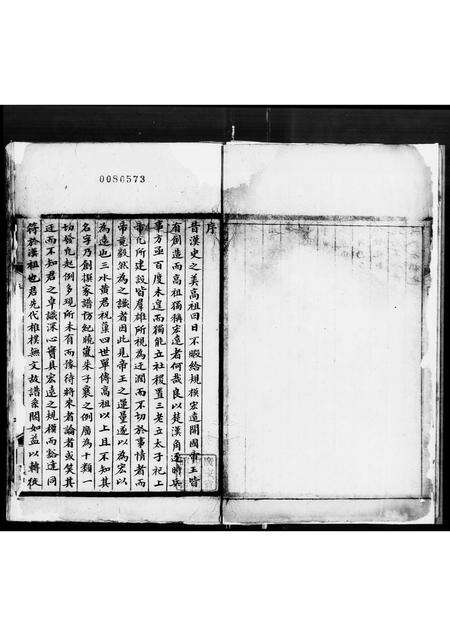 0080573
序
昔漢史之美高祖四曰不暇給規模宏遠開國帝王皆
有創造而高祖獨稱宏遠者何哉良以楚漢角逐時兵
事方亟百度未遑而獨能立社稷置三老立太子祀上
帝凡所建設皆羣雄所視為迂濶而不切於事情者而
帝竟毅然為之識者因此見帝王之運量遠以為宏以
為遠也三水黃君祝蕖四世單傳高祖以上且不知其
名字乃創撰家譜仿紀曉嵐朱子襄之例廣為十類一
切發凡起例多現所未有而係待將來者論者或笑其
迂而不知君之卓識深心實具宏遠之規模而豁達同
符於漢祖也君先代椎樸無文故譜系闕如益以轉徙